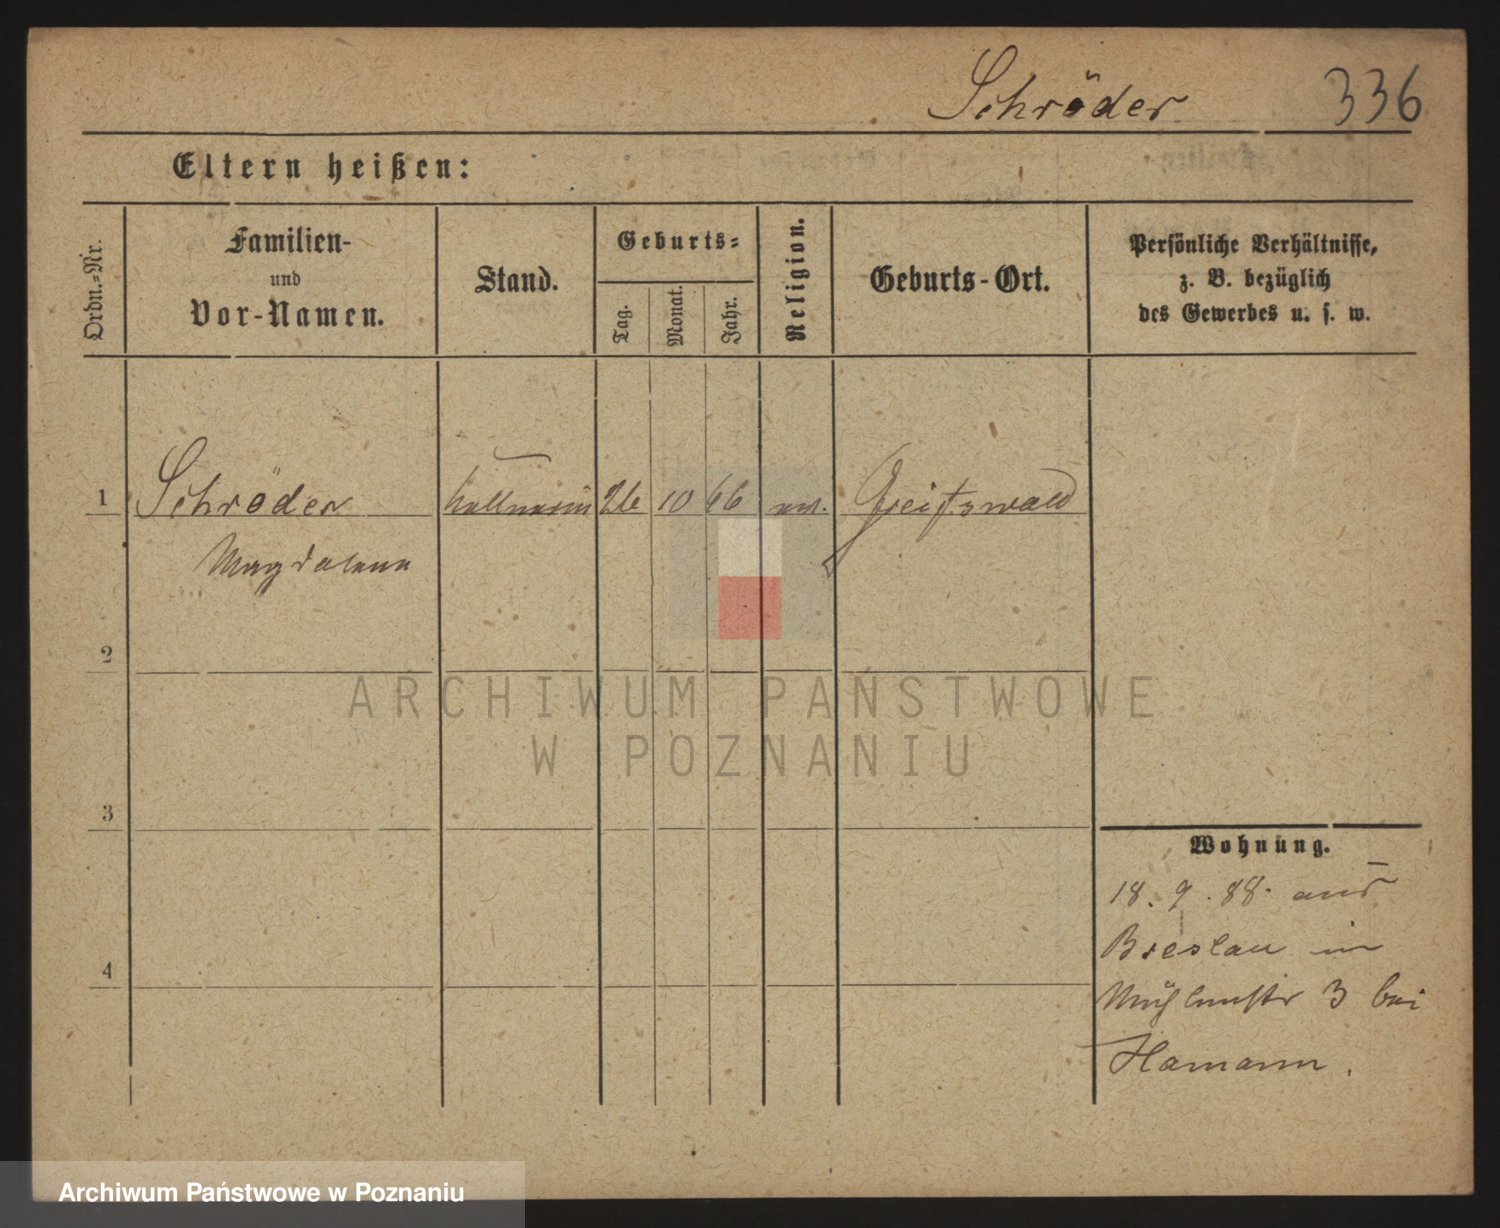 Schröder 336
Eltern heißen:
Ordn.-Nr.
Familien-
und
Vor-Namen.
Stand.
Geburts-
Tag.
Monat.
Jahr.
Religion.
Geburts-Ort.
Persönliche Verhältnisse,
z. B. bezüglich
des Gewerbes u. s. w.
1 Schröder 26 10 66 Greifswald
Magdalena
2
3
4
ARCHIWUM PAŃSTWOWE
W POZNANIU
Wohnung.
18. 9. 88. aus
Breslau in
Mühlenstr 3 bei
Hamann.
Archiwum Państwowe w Poznaniu